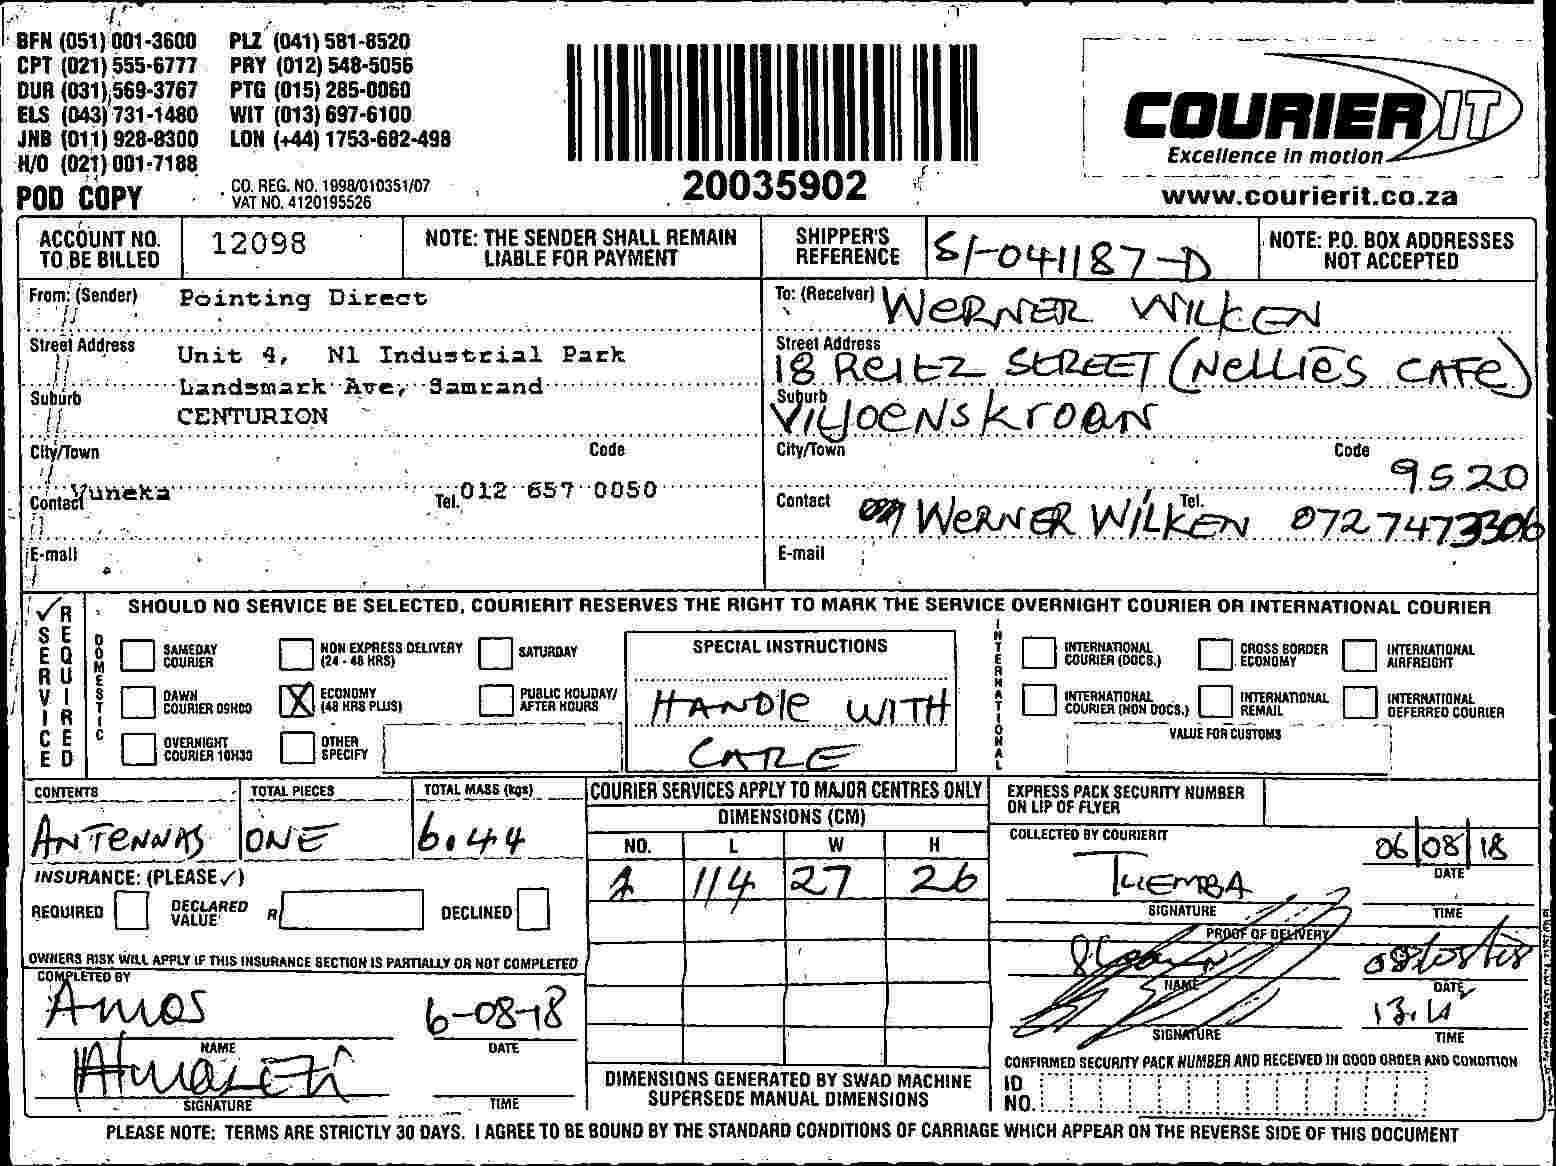 BFN (051) 001-3600 PLZ (041) 581-8520
CPT (021) 555-6777 PRY (012) 548-5056
DUR (031) 569-3767 PTG (015) 285-0060
ELS (043) 731-1480 WIT (013) 697-6100
JNB (011) 928-8300 LON (+44) 1753-682-498
H/O (021) 001-7188
POD COPY
CO. REG. NO. 1998/010351/07
VAT NO. 4120195526
20035902
COURIER IT
Excellence in motion
www.courierit.co.za
ACCOUNT NO. TO BE BILLED
12098
NOTE: THE SENDER SHALL REMAIN LIABLE FOR PAYMENT
SHIPPER'S REFERENCE
S1-041187-D
NOTE: P.O. BOX ADDRESSES NOT ACCEPTED
From: (Sender) Pointing Direct
Street Address Unit 4, N1 Industrial Park
Landsmark Ave, Samrand
Suburb CENTURION
City/Town Code
Contact Yuneka Tel. 012 657 0050
E-mail
To: (Receiver) WERNER WILKEN
Street Address
18 REITZ STREET (NELLIES CAFE)
Suburb
VILJOENSKROON
City/Town Code 9520
Contact WERNER WILKEN Tel. 0727473306
E-mail
SERVICE REQUIRED
SHOULD NO SERVICE BE SELECTED, COURIERIT RESERVES THE RIGHT TO MARK THE SERVICE OVERNIGHT COURIER OR INTERNATIONAL COURIER
DOMESTIC
SAMEDAY COURIER
NON EXPRESS DELIVERY (24 - 48 HRS)
SATURDAY
DAWN COURIER 09H00
X ECONOMY (48 HRS PLUS)
PUBLIC HOLIDAY/ AFTER HOURS
OVERNIGHT COURIER 10H30
OTHER SPECIFY
SPECIAL INSTRUCTIONS
HANDLE WITH
CARE
INTERNATIONAL
INTERNATIONAL COURIER (DOCS.)
CROSS BORDER ECONOMY
INTERNATIONAL AIRFREIGHT
INTERNATIONAL COURIER (NON DOCS.)
INTERNATIONAL REMAIL
INTERNATIONAL DEFERRED COURIER
VALUE FOR CUSTOMS
CONTENTS TOTAL PIECES TOTAL MASS (kgs)
ANTENNAS ONE 6.44
INSURANCE: (PLEASE ✓)
REQUIRED DECLARED VALUE R DECLINED
OWNERS RISK WILL APPLY IF THIS INSURANCE SECTION IS PARTIALLY OR NOT COMPLETED
COMPLETED BY
Amos 6-08-18
NAME DATE
SIGNATURE TIME
COURIER SERVICES APPLY TO MAJOR CENTRES ONLY
DIMENSIONS (CM)
NO. L W H
1 114 27 26
DIMENSIONS GENERATED BY SWAD MACHINE SUPERSEDE MANUAL DIMENSIONS
EXPRESS PACK SECURITY NUMBER ON LIP OF FLYER
COLLECTED BY COURIERIT
THEMBA 06/08/18
DATE
SIGNATURE TIME
PROOF OF DELIVERY
NAME DATE
SIGNATURE TIME
CONFIRMED SECURITY PACK NUMBER AND RECEIVED IN GOOD ORDER AND CONDITION
ID NO.
PLEASE NOTE: TERMS ARE STRICTLY 30 DAYS. I AGREE TO BE BOUND BY THE STANDARD CONDITIONS OF CARRIAGE WHICH APPEAR ON THE REVERSE SIDE OF THIS DOCUMENT